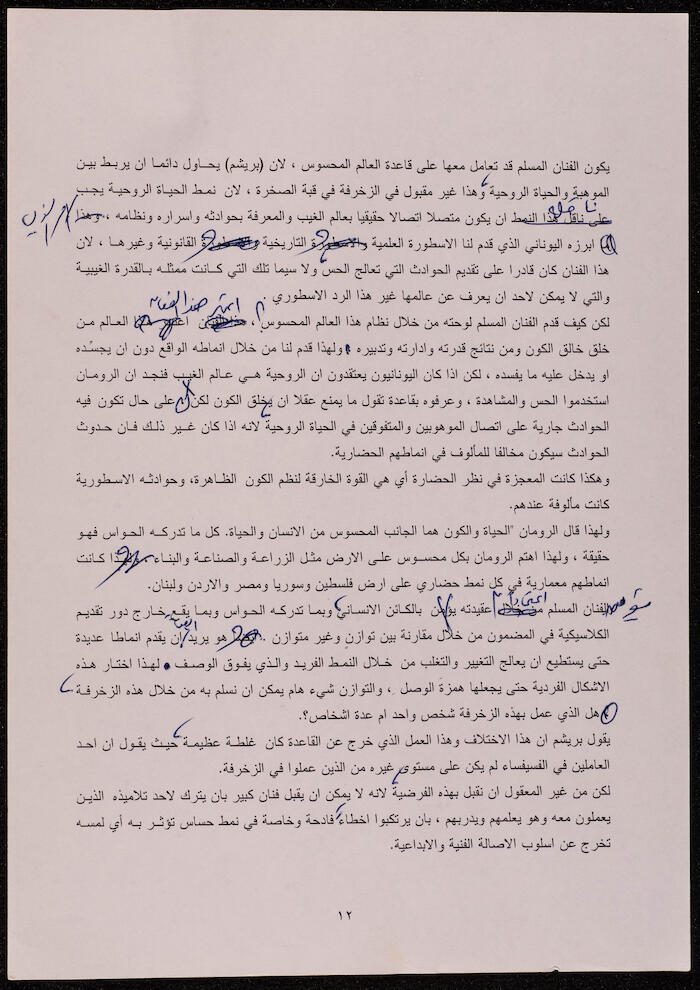 يكون الفنان المسلم قد تعامل معها على قاعدة العالم المحسوس ، لان (بريشم) يحاول دائما ان يربط بين
الموهبة والحياة الروحية وهذا غير مقبول في الزخرفة في قبة الصخرة ، لان نمط الحياة الروحية يجب
على ناقل هذا النمط ان يكون متصلا اتصالا حقيقيا بعالم الغيب والمعرفة بحوادثه واسراره ونظامه ، وهذا
ما ابرزه اليوناني الذي قدم لنا الاسطورة العلمية والاسطورة التاريخية والاسطورة القانونية وغيرها ، لان
هذا الفنان كان قادرا على تقديم الحوادث التي تعالج الحس ولا سيما تلك التي كانت ممثله بالقدرة الغيبية
والتي لا يمكن لاحد ان يعرف عن عالمها غير هذا الرد الاسطوري .
لكن كيف قدم الفنان المسلم لوحته من خلال نظام هذا العالم المحسوس ، هذا الفنان اعتبر هذا العالم من
خلق خالق الكون ومن نتائج قدرته وادارته وتدبيره ولهذا قدم لنا من خلال انماطه الواقع دون ان يجسده
او يدخل عليه ما يفسده ، لكن اذا كان اليونانيون يعتقدون ان الروحية هي عالم الغيب فنجد ان الرومان
استخدموا الحس والمشاهدة ، وعرفوه بقاعدة تقول ما يمنع عقلا ان يخلق الكون لكن على حال تكون فيه
الحوادث جارية على اتصال الموهوبين والمتفوقين في الحياة الروحية لانه اذا كان غير ذلك فان حدوث
الحوادث سيكون مخالفا للمألوف في انماطهم الحضارية.
وهكذا كانت المعجزة في نظر الحضارة أي هي القوة الخارقة لنظم الكون الظاهرة، وحوادثه الاسطورية
كانت مألوفة عندهم.
ولهذا قال الرومان "الحياة والكون هما الجانب المحسوس من الانسان والحياة. كل ما تدركه الحواس فهو
حقيقة ، ولهذا اهتم الرومان بكل محسوس على الارض مثل الزراعة والصناعة والبناء ، ولهذا كانت
انماطهم معمارية في كل نمط حضاري على ارض فلسطين وسوريا ومصر والاردن ولبنان.
الفنان المسلم من خلال عقيدته يؤمن بالكائن الانساني وبما تدركه الحواس وبما يقع خارج دور تقديم
الكلاسيكية في المضمون من خلال مقارنة بين توازن وغير متوازن . هو يريد ان يقدم انماطا عديدة
حتى يستطيع ان يعالج التغيير والتغلب من خلال النمط الفريد والذي يفوق الوصف لهذا اختار هذه
الاشكال الفردية حتى يجعلها همزة الوصل ، والتوازن شيء هام يمكن ان نسلم به من خلال هذه الزخرفة
هل الذي عمل بهذه الزخرفة شخص واحد ام عدة اشخاص؟.
يقول بريشم ان هذا الاختلاف وهذا العمل الذي خرج عن القاعدة كان غلطة عظيمة حيث يقول ان احد
العاملين في الفسيفساء لم يكن على مستوى غيره من الذين عملوا في الزخرفة.
لكن من غير المعقول ان نقبل بهذه الفرضية لانه لا يمكن ان يقبل فنان كبير بان يترك لاحد تلاميذه الذين
يعملون معه وهو يعلمهم ويدربهم ، بان يرتكبوا اخطاء فادحة وخاصة في نمط حساس تؤثر به أي لمسه
تخرج عن اسلوب الاصالة الفنية والابداعية.
١٢